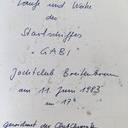 Taufe und Weihe
des
Startschiffes
"GABI"
Jachtclub Breitenbrunn
am 11. Juni 1983
um 17ʰ
gewidmet der